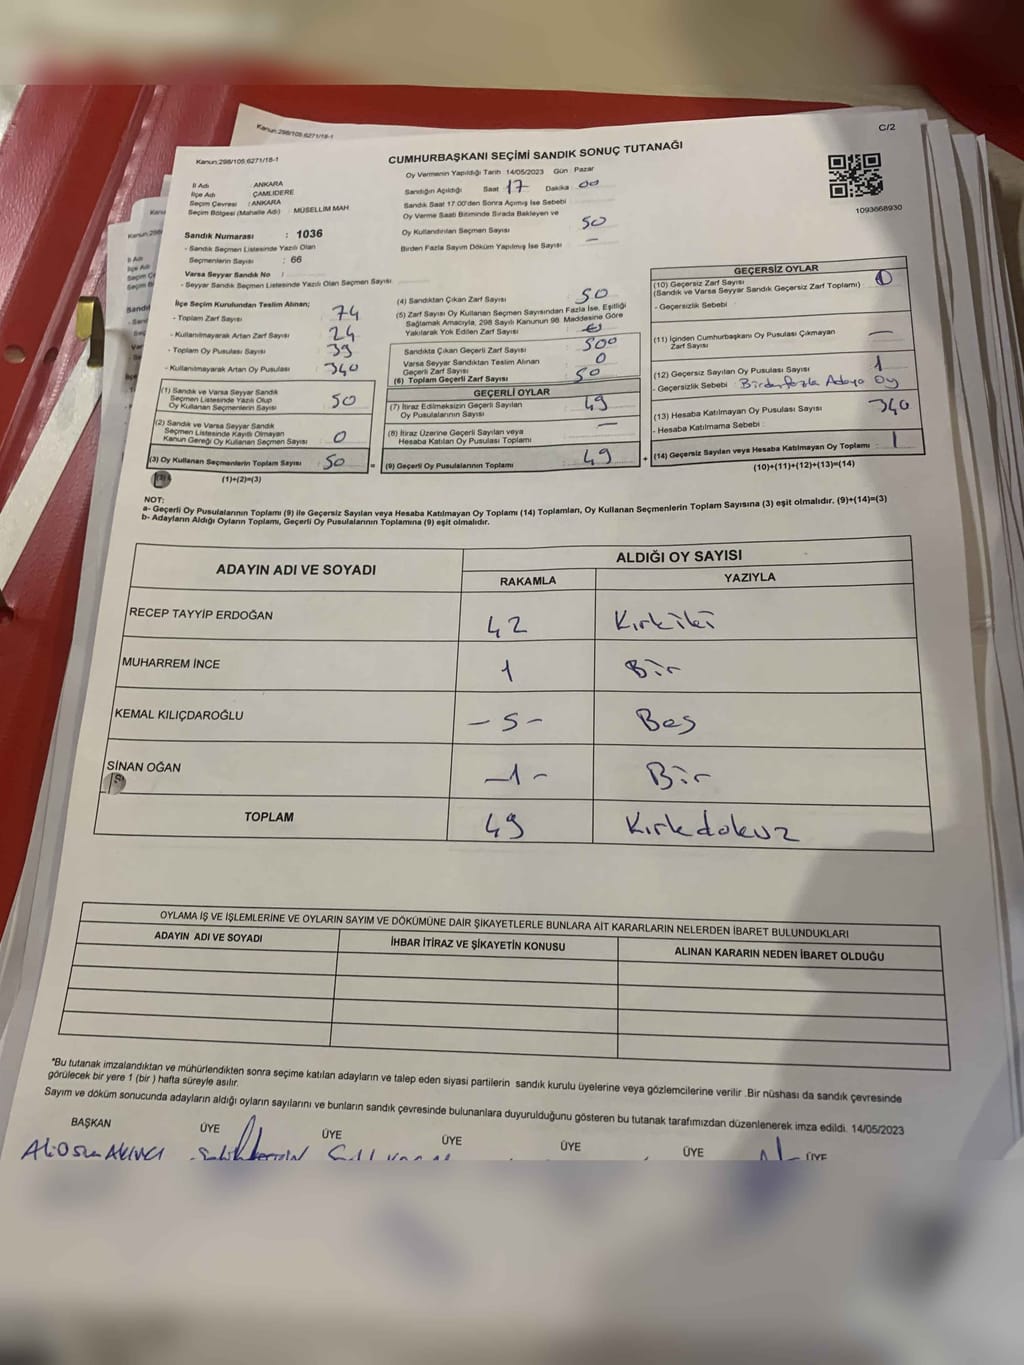 Kanun:298/105,6271/18-1
C/2
Kanun:298/105,6271/18-1
CUMHURBAŞKANI SEÇİMİ SANDIK SONUÇ TUTANAĞI
1093668930
İl Adı : ANKARA
İlçe Adı : ÇAMLIDERE
Seçim Çevresi : ANKARA
Seçim Bölgesi (Mahalle Adı) : MÜSELLİM MAH.
Sandık Numarası : 1036
- Sandık Seçmen Listesinde Yazılı Olan
Seçmenlerin Sayısı : 66
Varsa Seyyar Sandık No :
- Seyyar Sandık Seçmen Listesinde Yazılı Olan Seçmen Sayısı :
Oy Vermenin Yapıldığı Tarih :14/05/2023 Gün : Pazar
Sandığın Açıldığı Saat 17 Dakika 00
Sandık Saat 17:00'den Sonra Açımış Ise Sebebi
Oy Verme Saati Bitiminde Sırada Bekleyen ve
Oy Kullandırılan Seçmen Sayısı : 50
Birden Fazla Sayım Döküm Yapılmış İse Sayısı : —
İlçe Seçim Kurulundan Teslim Alınan;
- Toplam Zarf Sayısı : 74
- Kullanılmayarak Artan Zarf Sayısı : 24
- Toplam Oy Pusulası Sayısı : 39
- Kullanılmayarak Artan Oy Pusulası : 340
(1) Sandık ve Varsa Seyyar Sandık
Seçmen Listesinde Yazılı Olup
Oy Kullanan Seçmenlerin Sayısı : 50
(2) Sandık ve Varsa Seyyar Sandık
Seçmen Listesinde Kayıtlı Olmayan
Kanun Gereği Oy Kullanan Seçmen Sayısı : 0
(3) Oy Kullanan Seçmenlerin Toplam Sayısı : 50
(1)+(2)=(3)
(4) Sandıktan Çıkan Zarf Sayısı : 50
(5) Zarf Sayısı Oy Kullanan Seçmen Sayısından Fazla İse, Eşitliği
Sağlamak Amacıyla, 298 Sayılı Kanunun 98. Maddesine Göre
Yakılarak Yok Edilen Zarf Sayısı :
Sandıkta Çıkan Geçerli Zarf Sayısı : 500
Varsa Seyyar Sandıktan Teslim Alınan
Geçerli Zarf Sayısı : 0
(6) Toplam Geçerli Zarf Sayısı : 50
GEÇERLİ OYLAR
(7) İtiraz Edilmeksizin Geçerli Sayılan
Oy Pusulalarının Sayısı : 49
(8) İtiraz Üzerine Geçerli Sayılan veya
Hesaba Katılan Oy Pusulası Toplamı : —
= (9) Geçerli Oy Pusulalarının Toplamı : 49
GEÇERSİZ OYLAR
(10) Geçersiz Zarf Sayısı
(Sandık ve Varsa Seyyar Sandık Geçersiz Zarf Toplamı) :
- Geçersizlik Sebebi :
(11) İçinden Cumhurbaşkanı Oy Pusulası Çıkmayan
Zarf Sayısı : —
(12) Geçersiz Sayılan Oy Pusulası Sayısı : 1
- Geçersizlik Sebebi : Birden fazla Adaya Oy
(13) Hesaba Katılmayan Oy Pusulası Sayısı : 340
- Hesaba Katılmama Sebebi :
+ (14) Geçersiz Sayılan veya Hesaba Katılmayan Oy Toplamı : 1
(10)+(11)+(12)+(13)=(14)
NOT:
a- Geçerli Oy Pusulalarının Toplamı (9) ile Geçersiz Sayılan veya Hesaba Katılmayan Oy Toplamı (14) Toplamları, Oy Kullanan Seçmenlerin Toplam Sayısına (3) eşit olmalıdır. (9)+(14)=(3)
b- Adayların Aldığı Oyların Toplamı, Geçerli Oy Pusulalarının Toplamına (9) eşit olmalıdır.
ADAYIN ADI VE SOYADI
ALDIĞI OY SAYISI
RAKAMLA YAZIYLA
RECEP TAYYİP ERDOĞAN 42 Kırkiki
MUHARREM İNCE 1 Bir
KEMAL KILIÇDAROĞLU - 5 - Beş
SİNAN OĞAN -1- Bir
TOPLAM 49 Kırkdokuz
OYLAMA İŞ VE İŞLEMLERİNE VE OYLARIN SAYIM VE DÖKÜMÜNE DAİR ŞİKAYETLERLE BUNLARA AİT KARARLARIN NELERDEN İBARET BULUNDUKLARI
ADAYIN ADI VE SOYADI İHBAR İTİRAZ VE ŞİKAYETİN KONUSU ALINAN KARARIN NEDEN İBARET OLDUĞU
*Bu tutanak imzalandıktan ve mühürlendikten sonra seçime katılan adayların ve talep eden siyasi partilerin sandık kurulu üyelerine veya gözlemcilerine verilir .Bir nüshası da sandık çevresinde
görülecek bir yere 1 (bir ) hafta süreyle asılır.
Sayım ve döküm sonucunda adayların aldığı oyların sayılarını ve bunların sandık çevresinde bulunanlara duyurulduğunu gösteren bu tutanak tarafımızdan düzenlenerek imza edildi. 14/05/2023
BAŞKAN ÜYE ÜYE ÜYE ÜYE ÜYE ÜYE